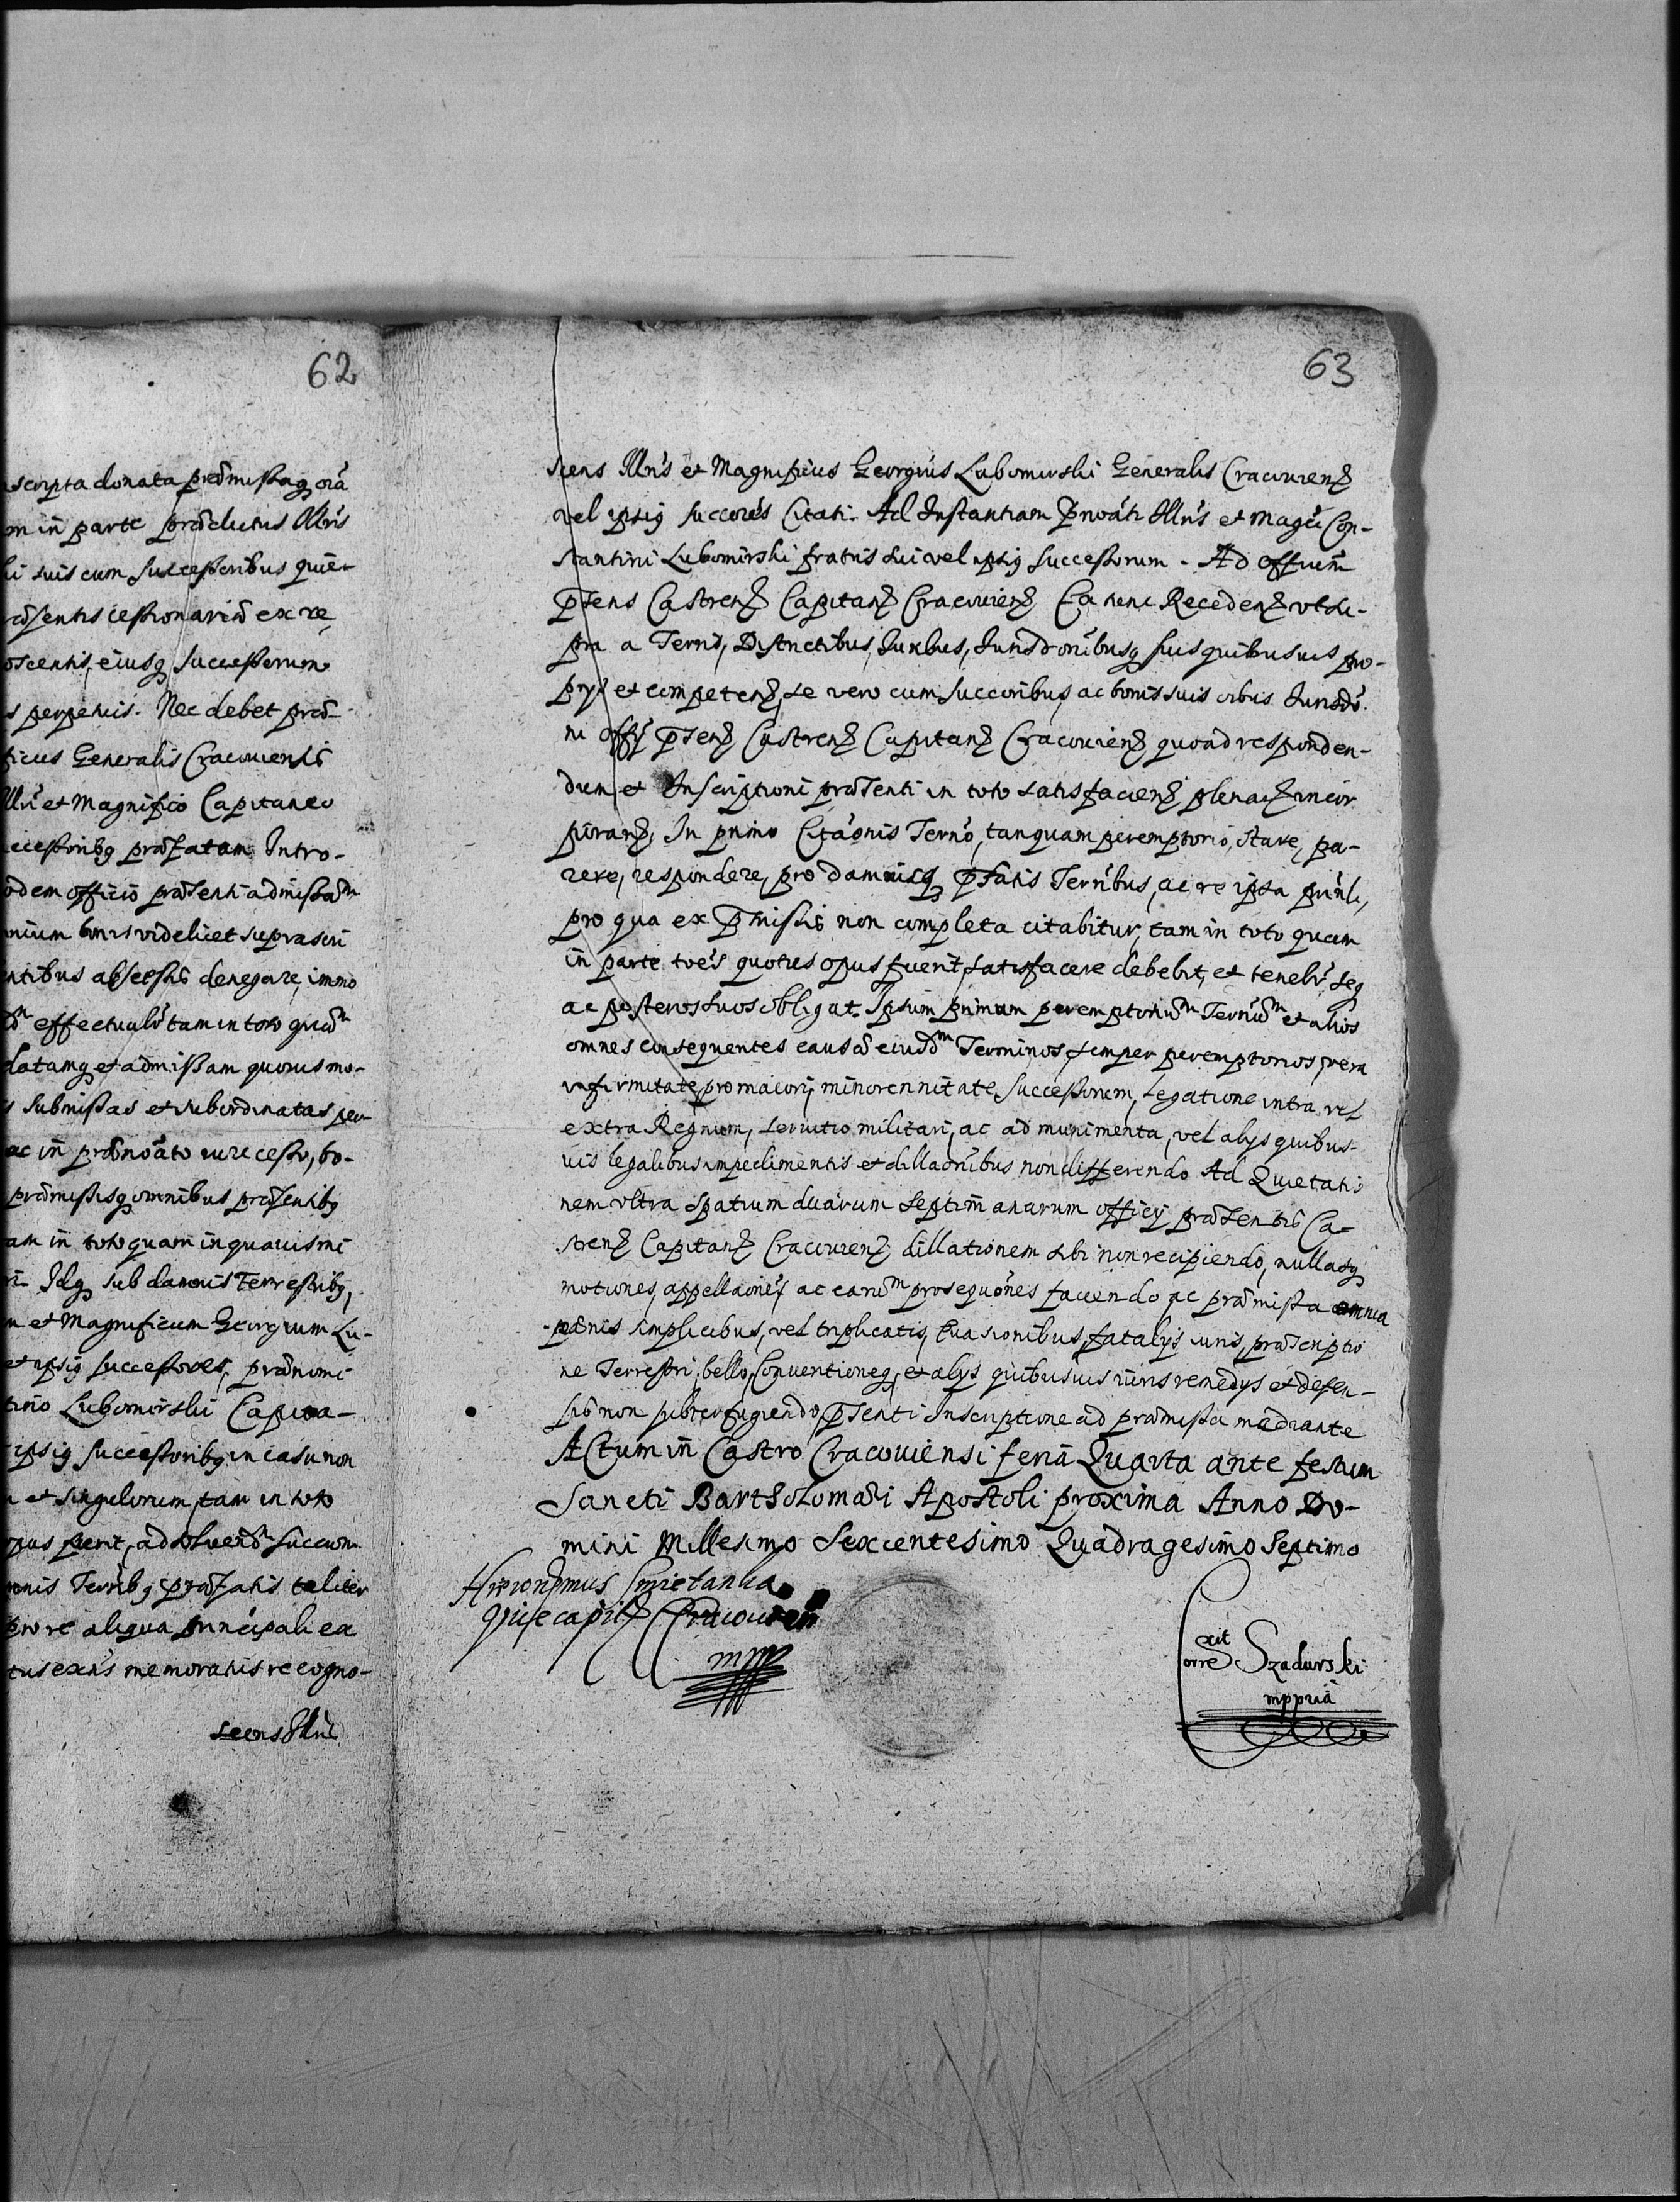 62
scripta donata præmissaq; oiã
m in parte prædictus Illris
ki suis cum successoribus quie-
ræsentis cessionariũ ex re
oscentis, eiusq; successorum
s perpetuis. Nec debet præ-
ficus Generalis Cracouiensis
Illri et Magnifico Capitaneo
ccessoribq præfatam Intro-
odem officio præsenti admissam
nium bonis videlicet suprascri
ntibus absensis denegare, immo
effectualr tam in toto quam
datamq; et admissam quouis mo-
s submissas et subordinatas per
ac in prænoãto iure cesso, bo-
præmissisq; omnibus præsentibq
am in toto quam in quauis mi
ri. Idq; sub damnis Terrestribq,
m et Magnificum Georgium Lu-
et ipsiq successores, prænomi
tino Lubomirski Capita-
ipsiq successoribq in casu non
m et singulorum, tam in toto
opus fuerit, adsoluend succum-
onis Terribq præfatis taliter
pro re aliqua principali ex
tus exns memoratis recogno-
scens Illris
63
scens Illris et Magnificus Georgius Lubomirski Generalis Cracouienz
vel ipsiq succores Citati. Ad Instantiam Pnoãti Illris et Magci Con-
stantini Lubomirski fratris sui vel ipsiq successorum. Ad Officium
Psens Castrenz Capitanz Cracouienz, Ea nenc Recedenz vt su-
pra a Terris, Districtibus, Iuribus, Iurisdrõnibusq; suis quibusuis pro-
prys et competenz, se vero cum succoribus, ac bonis suis oibus Iurisdõ-
ni Offy Psenz Castrenz Capitanz Cracouienz quoad responden-
dum et Inscriptioni præsenti in toto satisfacienz plenarz incor
poranz, In primo Citãonis Termõ, tanquam peremptorio, stare, pa-
rere, respondere, pro damnisq; Pfatis Terribus, ac re ipsa prinli,
pro qua ex Pmissis non completa citabitur, tam in toto quam
in parte toes quoties opus fuerit, satisfacere debebit, et tenebr seq
ac posteros suos obligat. Ipsum primum peremptorium Terminum et alios
omnes consequentes causã eiusdm Terminos, semper peremptorios, vera
infirmitate, pro maiori, minorennitate, successorum, Legatione intra vel
extra Regnum, seruitio militari, ac ad munimenta, vel alys quibus-
uis legalibus impedimentis et dillaõnibus non differendo Ad Quietatio
nem vltra spatium duarum septimanarum officy præsentis Ca-
strenz Capitanz Cracouienz, dillationem sibi non recipiendo, nullasq;
motiones, appellaones, ac earum prosequões faciendo, ac præmissa omnia
pænis simplicibus, vel triplicatis, Euasionibus, fatalys iuris, præscriptio
ne Terrestri, bello, Conuentioneq;, et alys quibusuis iuris remedys et defen-
sis non subterfugiendo, Psenti Inscriptione ad præmissa mediante
ACtum in Castro Cracouiensi feria Quarta ante festum
Sancti Bartholomæi Apostoli proxima Anno Do-
mini Millesimo Sexcentesimo Quadragesimo Septimo
Hieronymus Smietanka
Vicecapit Cracouien
mpp
Cor̃rexit Szadurski
mppriã